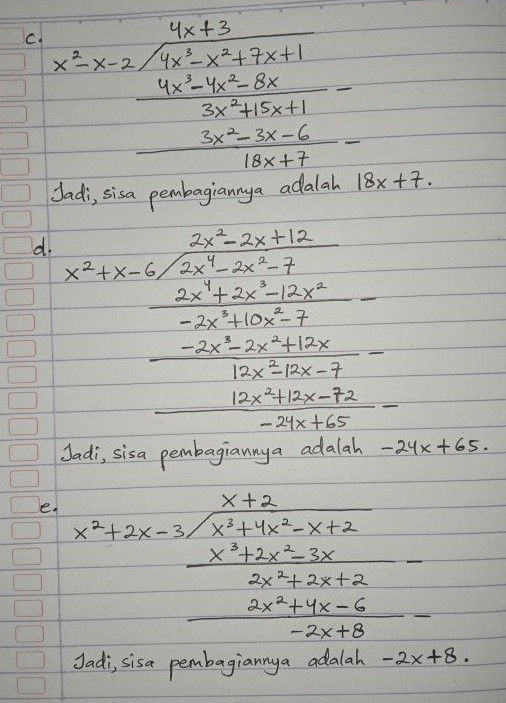 c. 4x+3
x²-x-2 / 4x³-x²+7x+1
4x³-4x²-8x -
3x²+15x+1
3x²-3x-6 -
18x+7
Jadi, sisa pembagiannya adalah 18x+7.
d. 2x²-2x+12
x²+x-6 / 2x⁴-2x²-7
2x⁴+2x³-12x² -
-2x³+10x²-7
-2x³-2x²+12x -
12x²-12x-7
12x²+12x-72 -
-24x+65
Jadi, sisa pembagiannya adalah -24x+65.
e. x+2
x²+2x-3 / x³+4x²-x+2
x³+2x²-3x -
2x²+2x+2
2x²+4x-6 -
-2x+8
Jadi, sisa pembagiannya adalah -2x+8.